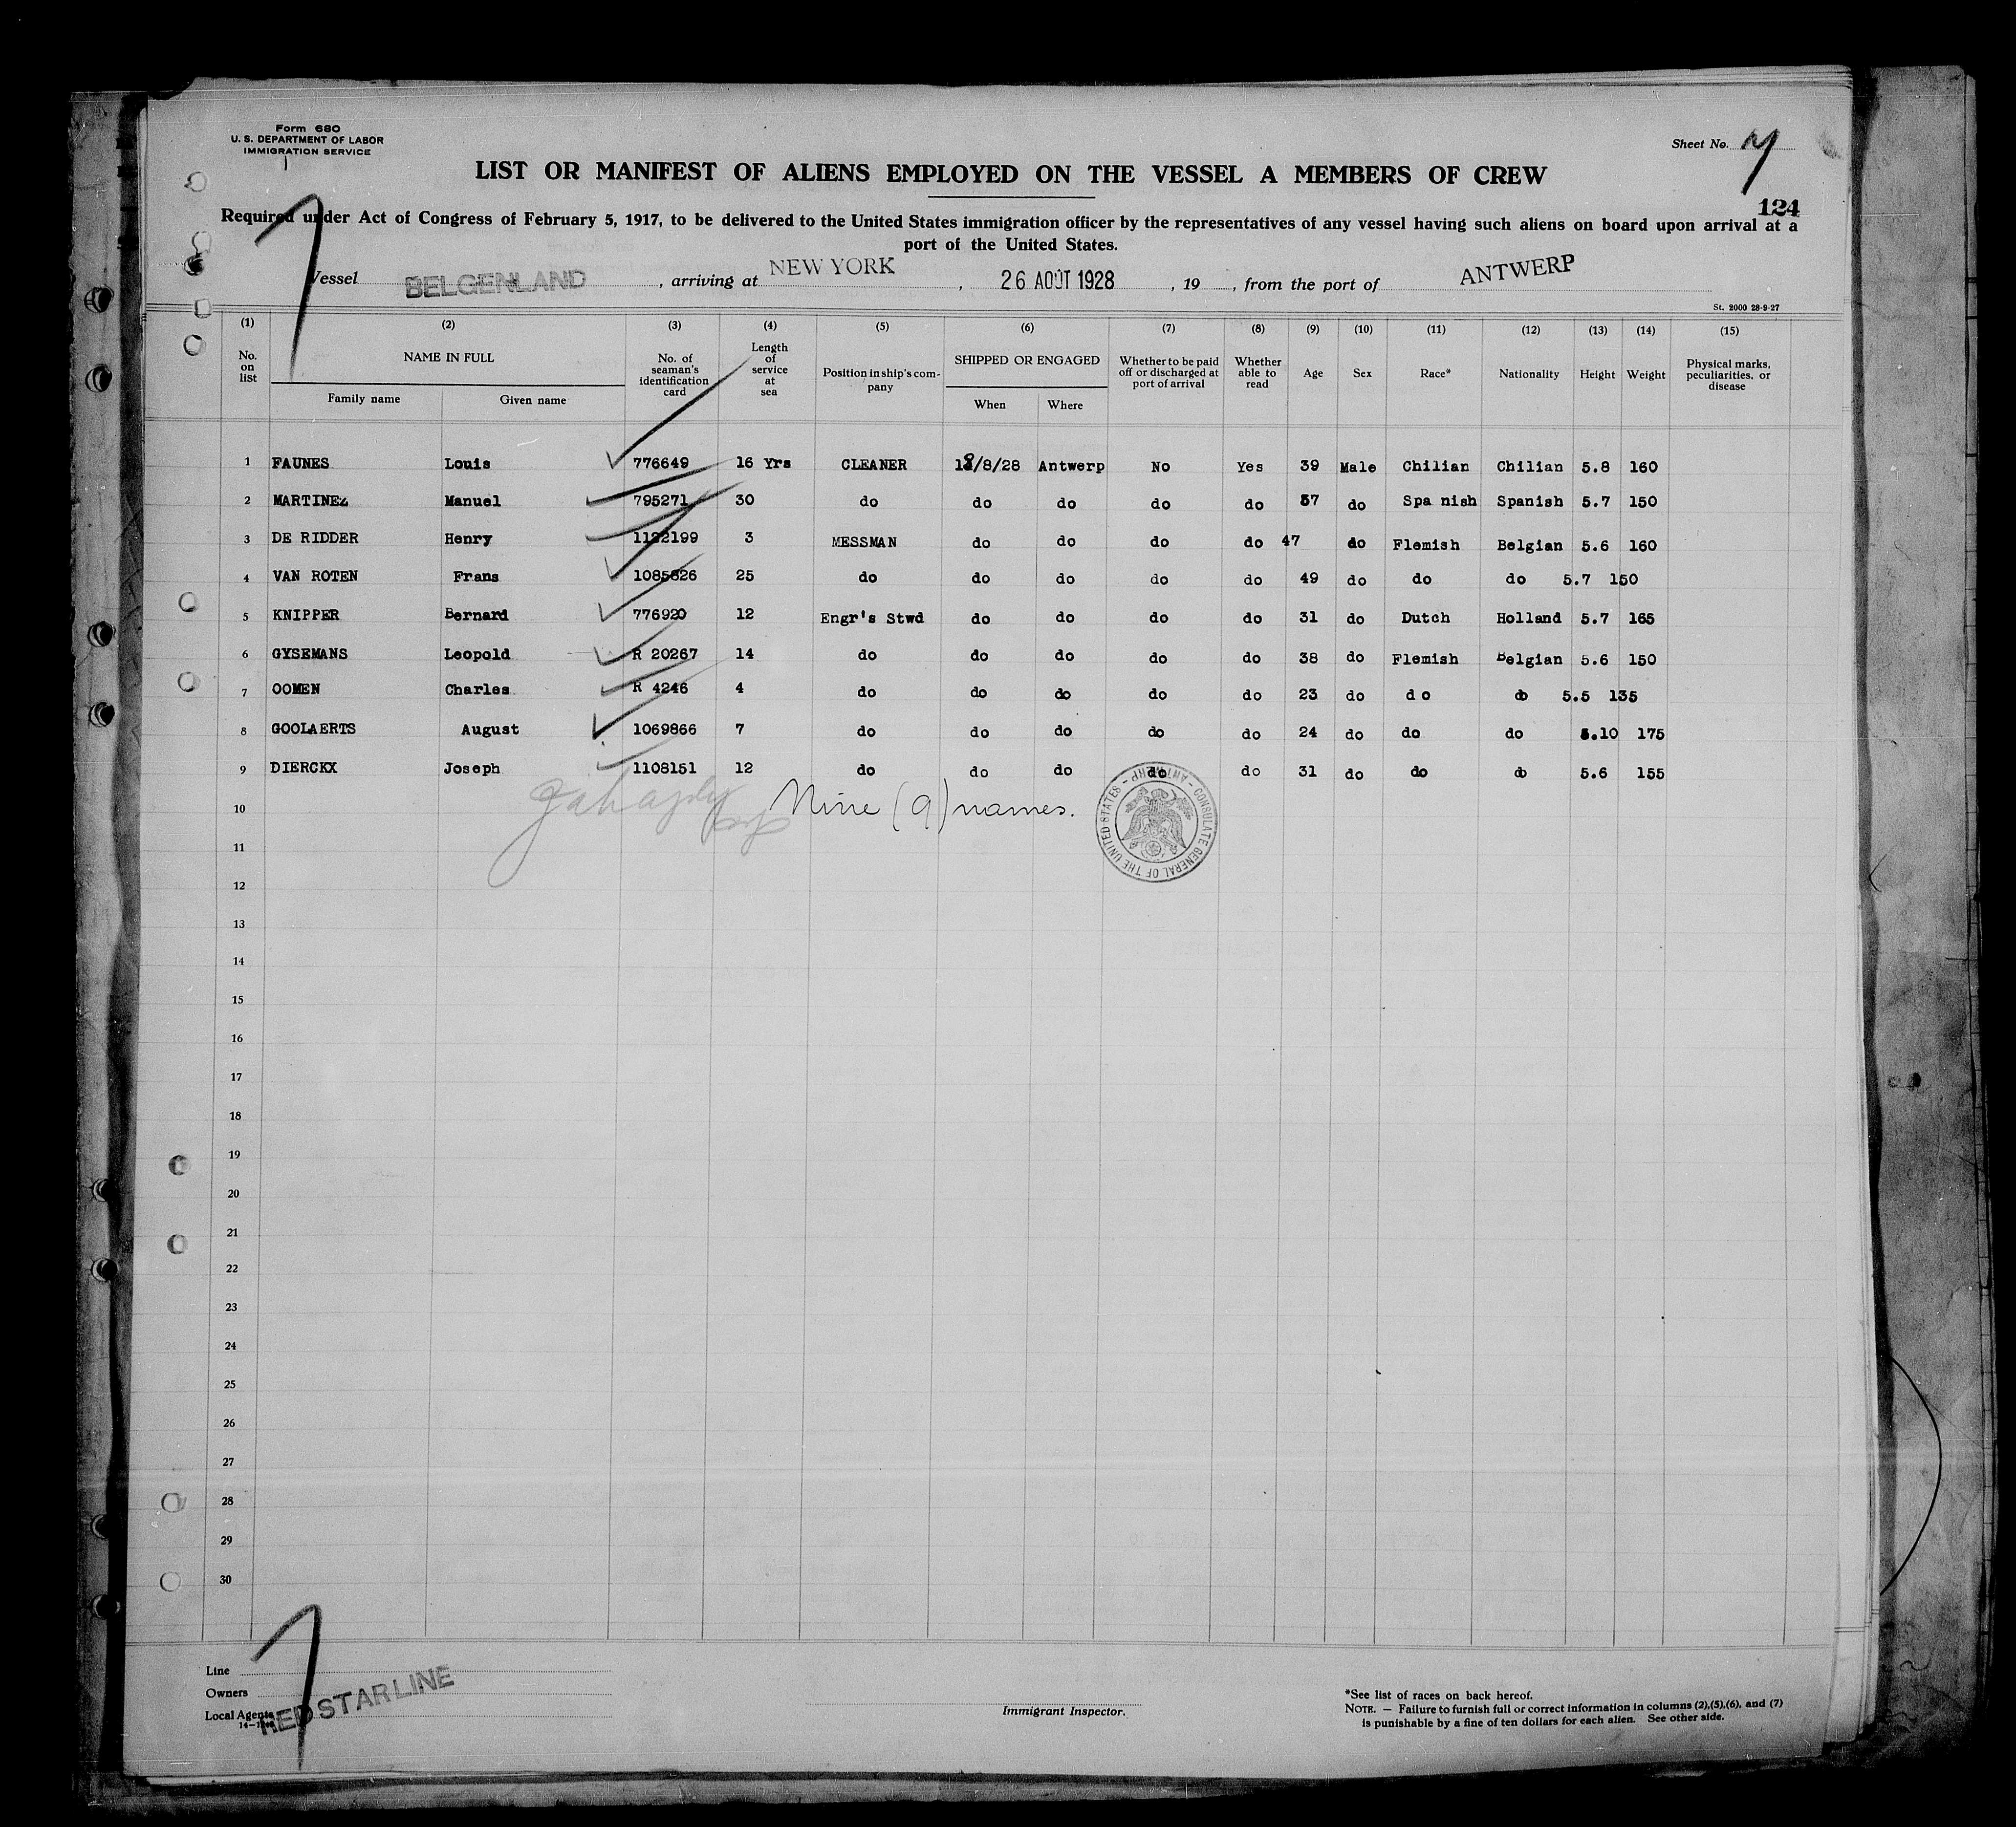 Form 680
U. S. DEPARTMENT OF LABOR
IMMIGRATION SERVICE
Sheet No. 7
LIST OR MANIFEST OF ALIENS EMPLOYED ON THE VESSEL A MEMBERS OF CREW
124
Required under Act of Congress of February 5, 1917, to be delivered to the United States immigration officer by the representatives of any vessel having such aliens on board upon arrival at a
port of the United States.
Vessel BELGENLAND, arriving at NEW YORK, 26 AOUT 1928, 19, from the port of ANTWERP
St. 2000 28-9-27
(1) (2) (3) (4) (5) (6) (7) (8) (9) (10) (11) (12) (13) (14) (15)
No. on list NAME IN FULL Family name Given name No. of seaman's identification card Length of service at sea Position in ship's company SHIPPED OR ENGAGED When Where Whether to be paid off or discharged at port of arrival Whether able to read Age Sex Race* Nationality Height Weight Physical marks, peculiarities, or disease
1 FAUNES Louis 776649 16 Yrs CLEANER /8/28 Antwerp No Yes 39 Male Chilian Chilian 5.8 160
2 MARTINEZ Manuel 795271 30 do do do do do 57 do Spa nish Spanish 5.7 150
3 DE RIDDER Henry 1132199 3 MESSMAN do do do do 47 do Flemish Belgian 5.6 160
4 VAN ROTEN Frans 1085826 25 do do do do do 49 do do do 5.7 150
5 KNIPPER Bernard 776920 12 Engr's Stwd do do do do 31 do Dutch Holland 5.7 165
6 GYSEMANS Leopold R 20267 14 do do do do do 38 do Flemish Belgian 5.6 150
7 OOMEN Charles R 4246 4 do do do do do 23 do d o do 5.5 135
8 GOOLAERTS August 1069866 7 do do do do do 24 do do do 5.10 175
9 DIERCKX Joseph 1108151 12 do do do do do 31 do do do 5.6 155
10 Nine (9) names.
CONSULATE GENERAL OF THE UNITED STATES - ANTWERP -
11
12
13
14
15
16
17
18
19
20
21
22
23
24
25
26
27
28
29
30
7
Line
Owners
Local Agents
RED STAR LINE
Immigrant Inspector.
*See list of races on back hereof.
NOTE. — Failure to furnish full or correct information in columns (2),(5),(6), and (7)
is punishable by a fine of ten dollars for each alien. See other side.